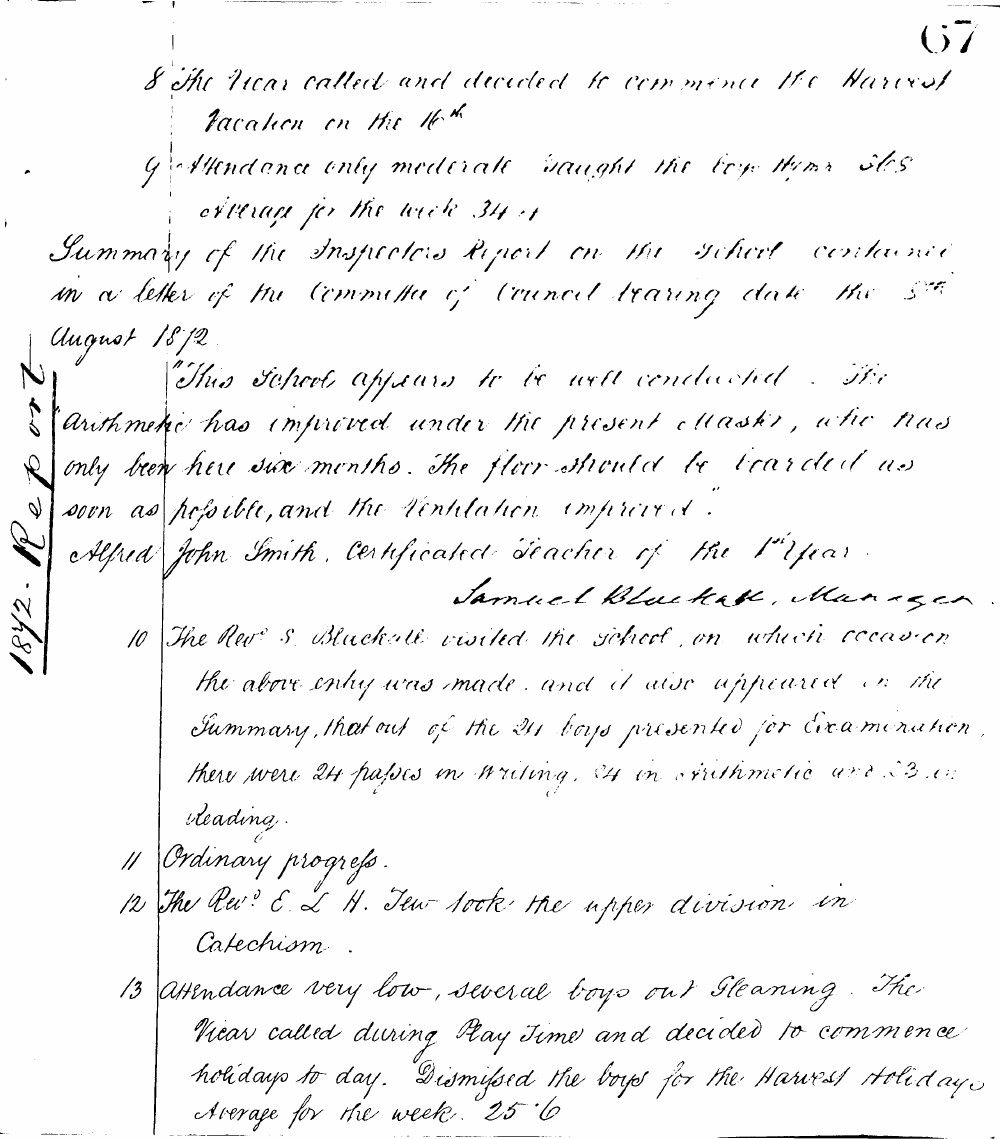 67
8 The Vicar called and decided to commence the Harvest
Vacation on the 16th
9 Attendance only moderate Taught the boys Hymn
Average for the week 34
Summary of the Inspectors Report on the School contained
in a letter of the Committee of Council bearing date the 5th
August 1872
"This School appears to be well conducted. The
"Arithmetic has improved under the present Master, who has
only been here six months. The floor should be boarded as
soon as possible, and the Ventilation improved".
Alfred John Smith. Certificated Teacher of the 1st Year.
Samuel Blackall, Manager.
1872. Report
10 The Revd S. Blackall visited the School, on which occasion
the above entry was made. and it also appeared in the
Summary, that out of the 24 boys presented for Examination,
there were 24 passes in Writing, 24 in Arithmetic and 23 in
Reading.
11 Ordinary progress.
12 The Revd E. L H. Tew took the upper division in
Catechism.
13 Attendance very low, several boys out Gleaning. The
Vicar called during Play Time and decided to commence
holidays to day. Dismissed the boys for the Harvest Holidays
Average for the week. 25·6